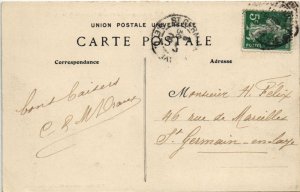 UNION POSTALE UNIVERSELLE
CARTE POSTALE
Correspondance
Adresse
5
Bons Baisers
C & M
Monsieur H. Felix
46 rue de Mareilles
St Germain en Laye